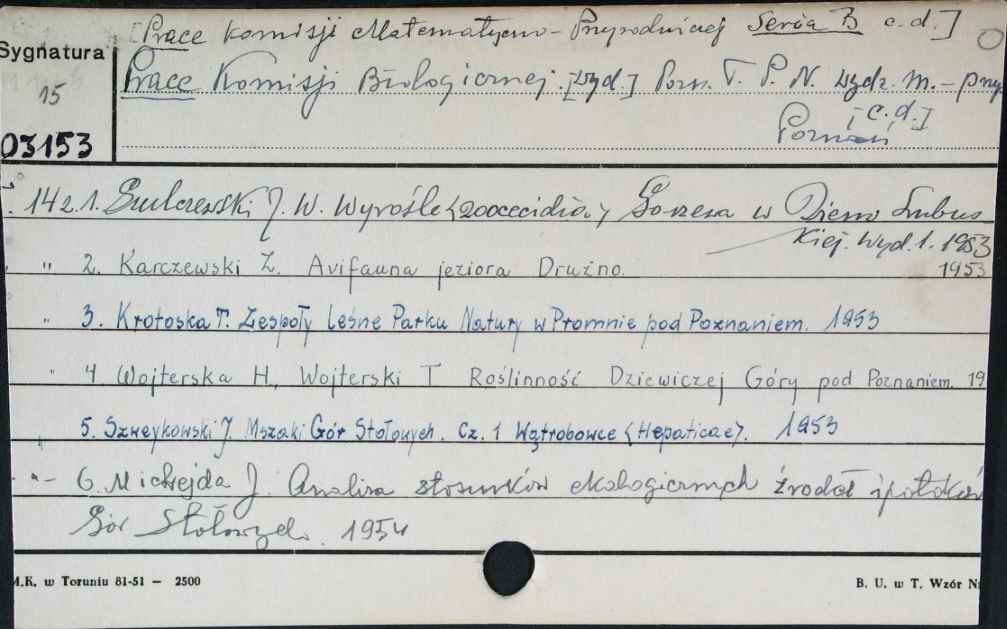 [Prace Komisji Matematyczno-Przyrodniczej Seria B c.d.]
Sygnatura
15
03153
Prace Komisji Biologicznej. [Wyd.] Pozn. T. P. N. Wydz. M.-przy
[c.d.]
Poznań
14 z. 1. J. W. Wyrośle (zoocecidia) Gorzena w Ziemi Lubus
kiej. Wyd. 1. 1953
" 2. Karczewski Z. Avifauna jeziora Drużno. 1953
" 3. Krotoska T. Zespoły leśne Parku Natury w Promnie pod Poznaniem. 1953
" 4 Wojterska H., Wojterski T Roślinność Dziewiczej Góry pod Poznaniem. 19
" 5. Szweykowski J. Mszaki Gór Stołowych. Cz. 1 Wątrobowce (Hepaticae). 1953
-"- 6. Michejda J. Analiza stosunków ekologicznych źródeł i potoków
Gór Stołowych. 1954
M.K. w Toruniu 81-51 — 2500
B. U. w T. Wzór N